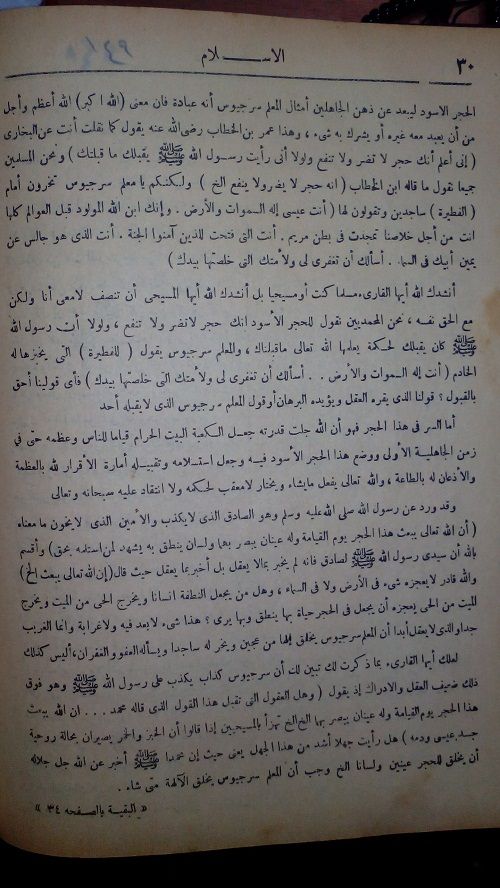 ٣٠
الاســـلام
الحجر الاسود ليبعد عن ذهن الجاهلين أمثال المعلم سرجيوس أنه عبادة فان معنى (الله اكبر) الله أعظم وأجل
من أن يعبد معه غيره أو يشرك به شىء ، وهذا عمر بن الخطاب رضى الله عنه يقول كما نقلت أنت عن البخارى
( إنى أعلم أنك حجر لا تضر ولا تنفع ولولا أنى رأيت رسول الله ﷺ يقبلك ما قبلتك ) ونحن المسلمين
جميعا نقول ما قاله ابن الخطاب ( انه حجر لا يضر ولا ينفع الخ ) ولكنكم يا معلم سرجيوس تخرون أمام
( الفطيرة ) ساجدين وتقولون لها ( أنت عيسى إله السموات والأرض . وإنك ابن الله المولود قبل العوالم كلها
انت من أجل خلاصنا تمجدت فى بطن مريم . أنت التى فتحت للذين آمنوا الجنة . أنت الذى هو جالس عن
يمين أبيك فى السماء . أسألك أن تغفرى لى ولأمتك التى خلصتها بيدك )
أنشدك الله أيها القارىء مسلما كنت أو مسيحيا بل أنشدك الله أيها المسيحى أن تنصف لا معى أنا ولكن
مع الحق نفسه ، نحن المحمديين نقول للحجر الأسود انك حجر لا تضر ولا تنفع ، ولولا أن رسول الله
ﷺ كان يقبلك لحكمة يعلمها الله تعالى ما قبلناك ، والمعلم سرجيوس يقول ( للفطيرة ) التى يخبزها له
الخادم ( أنت إله السموات والأرض . . أسألك أن تغفرى لى ولأمتك التى خلصتها بيدك ) فأى قولينا أحق
بالقبول ؟ قولنا الذى يقره العقل ويؤيده البرهان أو قول المعلم سرجيوس الذى لا يقبله أحد
أما السر فى هذا الحجر فهو أن الله جلت قدرته جعل الكعبة البيت الحرام قياما للناس وعظمه حتى فى
زمن الجاهلية الأولى ووضع هذا الحجر الأسود فيه وجعل استلامه وتقبيله أمارة الأقرار له بالعظمة
والأذعان له بالطاعة ، والله تعالى يفعل ما يشاء ويختار لا معقب لحكمه ولا انتقاد عليه سبحانه وتعالى
وقد ورد عن رسول الله صلى الله عليه وسلم وهو الصادق الذى لا يكذب والأمين الذى لا يخون ما معناه
( أن الله تعالى يبعث هذا الحجر يوم القيامة وله عينان يبصر بهما ولسان ينطق به يشهد لمن استلمه بحق ) وأقسم
بالله أن سيدى رسول الله ﷺ لصادق فانه لم يخبر بمالا يعقل بل أخبر بما يعقل حيث قال (إن الله تعالى يبعث الخ)
والله قادر لا يعجزه شىء فى الأرض ولا فى السماء ، وهل من يجعل النطفة انسانا ويخرج الحى من الميت ويخرج
الميت من الحى يعجزه أن يجعل فى الحجر حياة بها ينطق وبها يرى ؟ هذا شىء لا بعد فيه ولا غرابة وانما الغريب
جدا والذى لا يعقل أبدا أن المعلم سرجيوس يخلق إلها من عجين ويخر له ساجدا ويسأله العفو والغفران ، أليس كذلك
لعلك أيها القارىء بما ذكرت لك تبين لك أن سرجيوس كذاب يكذب على رسول الله ﷺ وهو فوق
ذلك ضعيف العقل والادراك إذ يقول ( وهل العقول التى تقبل هذا القول الذى قاله محمد . . . ان الله يبعث
هذا الحجر يوم القيامة وله عينان يبصر بهما الخ الخ تهزأ بالمسيحيين إذا قالوا أن الخبز والخمر يصيران بحالة روحية
جسد عيسى ودمه ) هل رأيت جهلا أشد من هذا الجهل يعنى حيث إن محمدا ﷺ أخبر عن الله جل جلاله
أن يخلق للحجر عينين ولسانا الخ وجب أن المعلم سرجيوس يخلق الآلهة متى شاء .
« البقية بالصفحه ٣٤ »